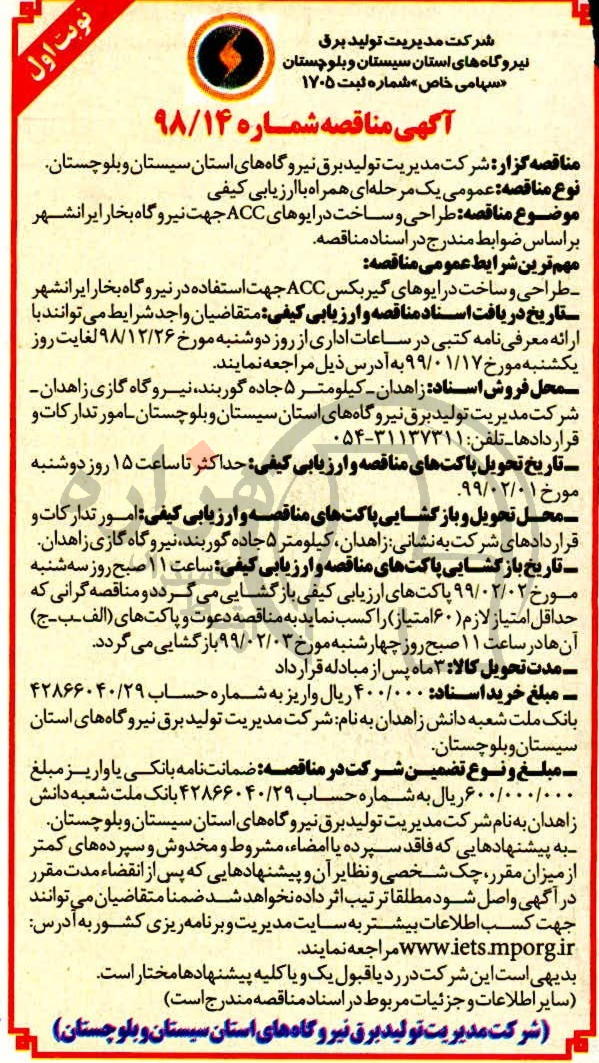 نوبت اول
شرکت مدیریت تولید برق
نیروگاه‌های استان سیستان و بلوچستان
«سهامی خاص» شماره ثبت ۱۷۰۵
آگهی مناقصه شماره ۹۸/۱۴
مناقصه گزار: شرکت مدیریت تولید برق نیروگاه‌های استان سیستان و بلوچستان.
نوع مناقصه: عمومی یک مرحله‌ای همراه با ارزیابی کیفی
موضوع مناقصه: طراحی و ساخت درایوهای ACC جهت نیروگاه بخار ایرانشهر
بر اساس ضوابط مندرج در اسناد مناقصه.
مهم‌ترین شرایط عمومی مناقصه:
ـ طراحی و ساخت درایوهای گیربکس ACC جهت استفاده در نیروگاه بخار ایرانشهر
ـ تاریخ دریافت اسناد مناقصه و ارزیابی کیفی: متقاضیان واجد شرایط می‌توانند با
ارائه معرفی نامه کتبی در ساعات اداری از روز دوشنبه مورخ ۹۸/۱۲/۲۶ لغایت روز
یکشنبه مورخ ۹۹/۰۱/۱۷ به آدرس ذیل مراجعه نمایند.
ـ محل فروش اسناد: زاهدان ـ کیلومتر ۵ جاده گوربند، نیروگاه گازی زاهدان ـ
شرکت مدیریت تولید برق نیروگاه‌های استان سیستان و بلوچستان ـ امور تدارکات و
قراردادها ـ تلفن: ۳۱۱۳۷۳۱۱-۰۵۴
ـ تاریخ تحویل پاکت‌های مناقصه و ارزیابی کیفی: حداکثر تا ساعت ۱۵ روز دوشنبه
مورخ ۹۹/۰۲/۰۱.
ـ محل تحویل و بازگشایی پاکت‌های مناقصه و ارزیابی کیفی: امور تدارکات و
قراردادهای شرکت به نشانی: زاهدان، کیلومتر ۵ جاده گوربند، نیروگاه گازی زاهدان.
ـ تاریخ بازگشایی پاکت‌های مناقصه و ارزیابی کیفی: ساعت ۱۱ صبح روز سه شنبه
مورخ ۹۹/۰۲/۰۲ پاکت‌های ارزیابی کیفی بازگشایی می‌گردد و مناقصه گرانی که
حداقل امتیاز لازم (۶۰ امتیاز) را کسب نماید به مناقصه دعوت و پاکت‌های (الف-ب-ج)
آن‌ها در ساعت ۱۱ صبح روز چهارشنبه مورخ ۹۹/۰۲/۰۳ بازگشایی می‌گردد.
ـ مدت تحویل کالا: ۳ ماه پس از مبادله قرارداد
ـ مبلغ خرید اسناد: ۴۰۰/۰۰۰ ریال واریز به شماره حساب ۴۲۸۶۶۰۴۰/۲۹
بانک ملت شعبه دانش زاهدان به نام: شرکت مدیریت تولید برق نیروگاه‌های استان
سیستان و بلوچستان.
ـ مبلغ و نوع تضمین شرکت در مناقصه: ضمانت نامه بانکی یا واریز مبلغ
۶۰۰/۰۰۰/۰۰۰ ریال به شماره حساب ۴۲۸۶۶۰۴۰/۲۹ بانک ملت شعبه دانش
زاهدان به نام شرکت مدیریت تولید برق نیروگاه‌های استان سیستان و بلوچستان.
ـ به پیشنهادهایی که فاقد سپرده یا امضاء، مشروط و مخدوش و سپرده‌های کمتر
از میزان مقرر، چک شخصی و نظایر آن و پیشنهادهایی که پس از انقضاء مدت مقرر
در آگهی واصل شود مطلقا ترتیب اثر داده نخواهد شد ضمنا متقاضیان می‌توانند
جهت کسب اطلاعات بیشتر به سایت مدیریت و برنامه ریزی کشور به آدرس:
www.iets.mporg.ir مراجعه نمایند.
بدیهی است این شرکت در رد یا قبول یک و یا کلیه پیشنهادها مختار است.
(سایر اطلاعات و جزئیات مربوط در اسناد مناقصه مندرج است)
(شرکت مدیریت تولید برق نیروگاه‌های استان سیستان و بلوچستان)